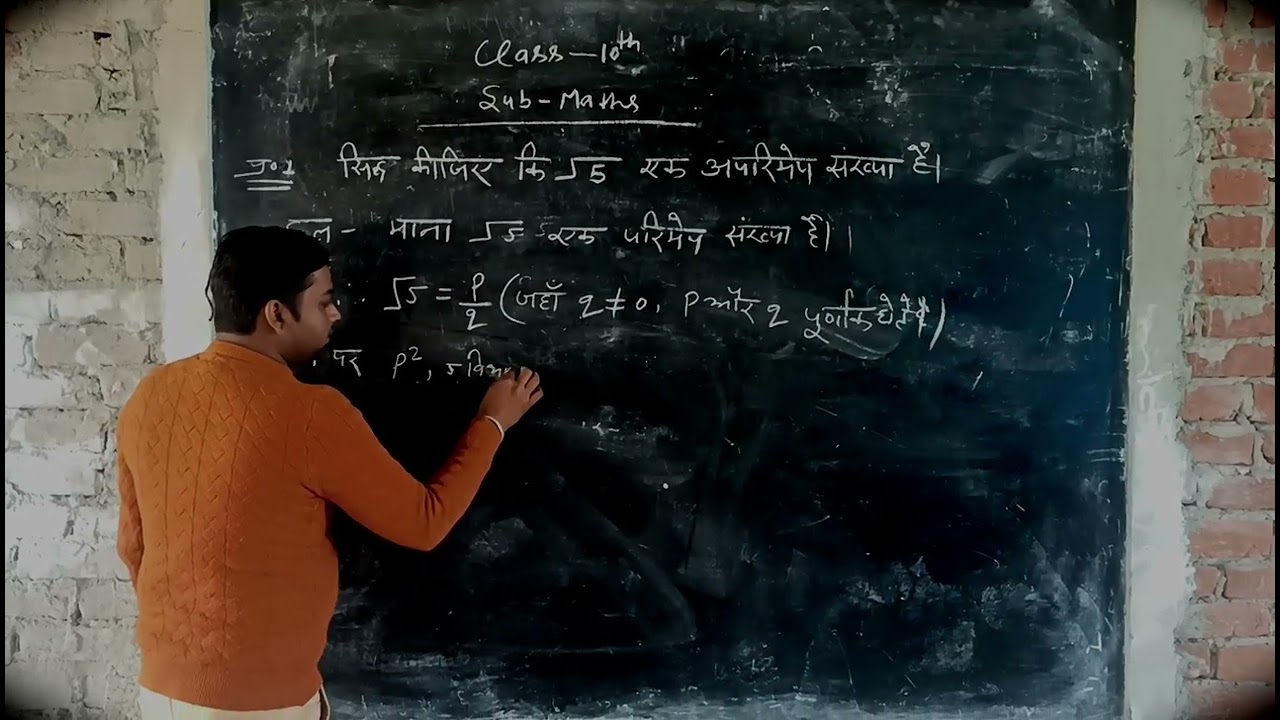 Class - 10th
Sub - Maths
प्र०1 सिद्ध कीजिए कि √5 एक अपरिमेय संख्या है।
हल - माना √5 एक परिमेय संख्या है।
√5 = p/q (जहाँ q ≠ 0, p और q पूर्णांक
पर p², 5